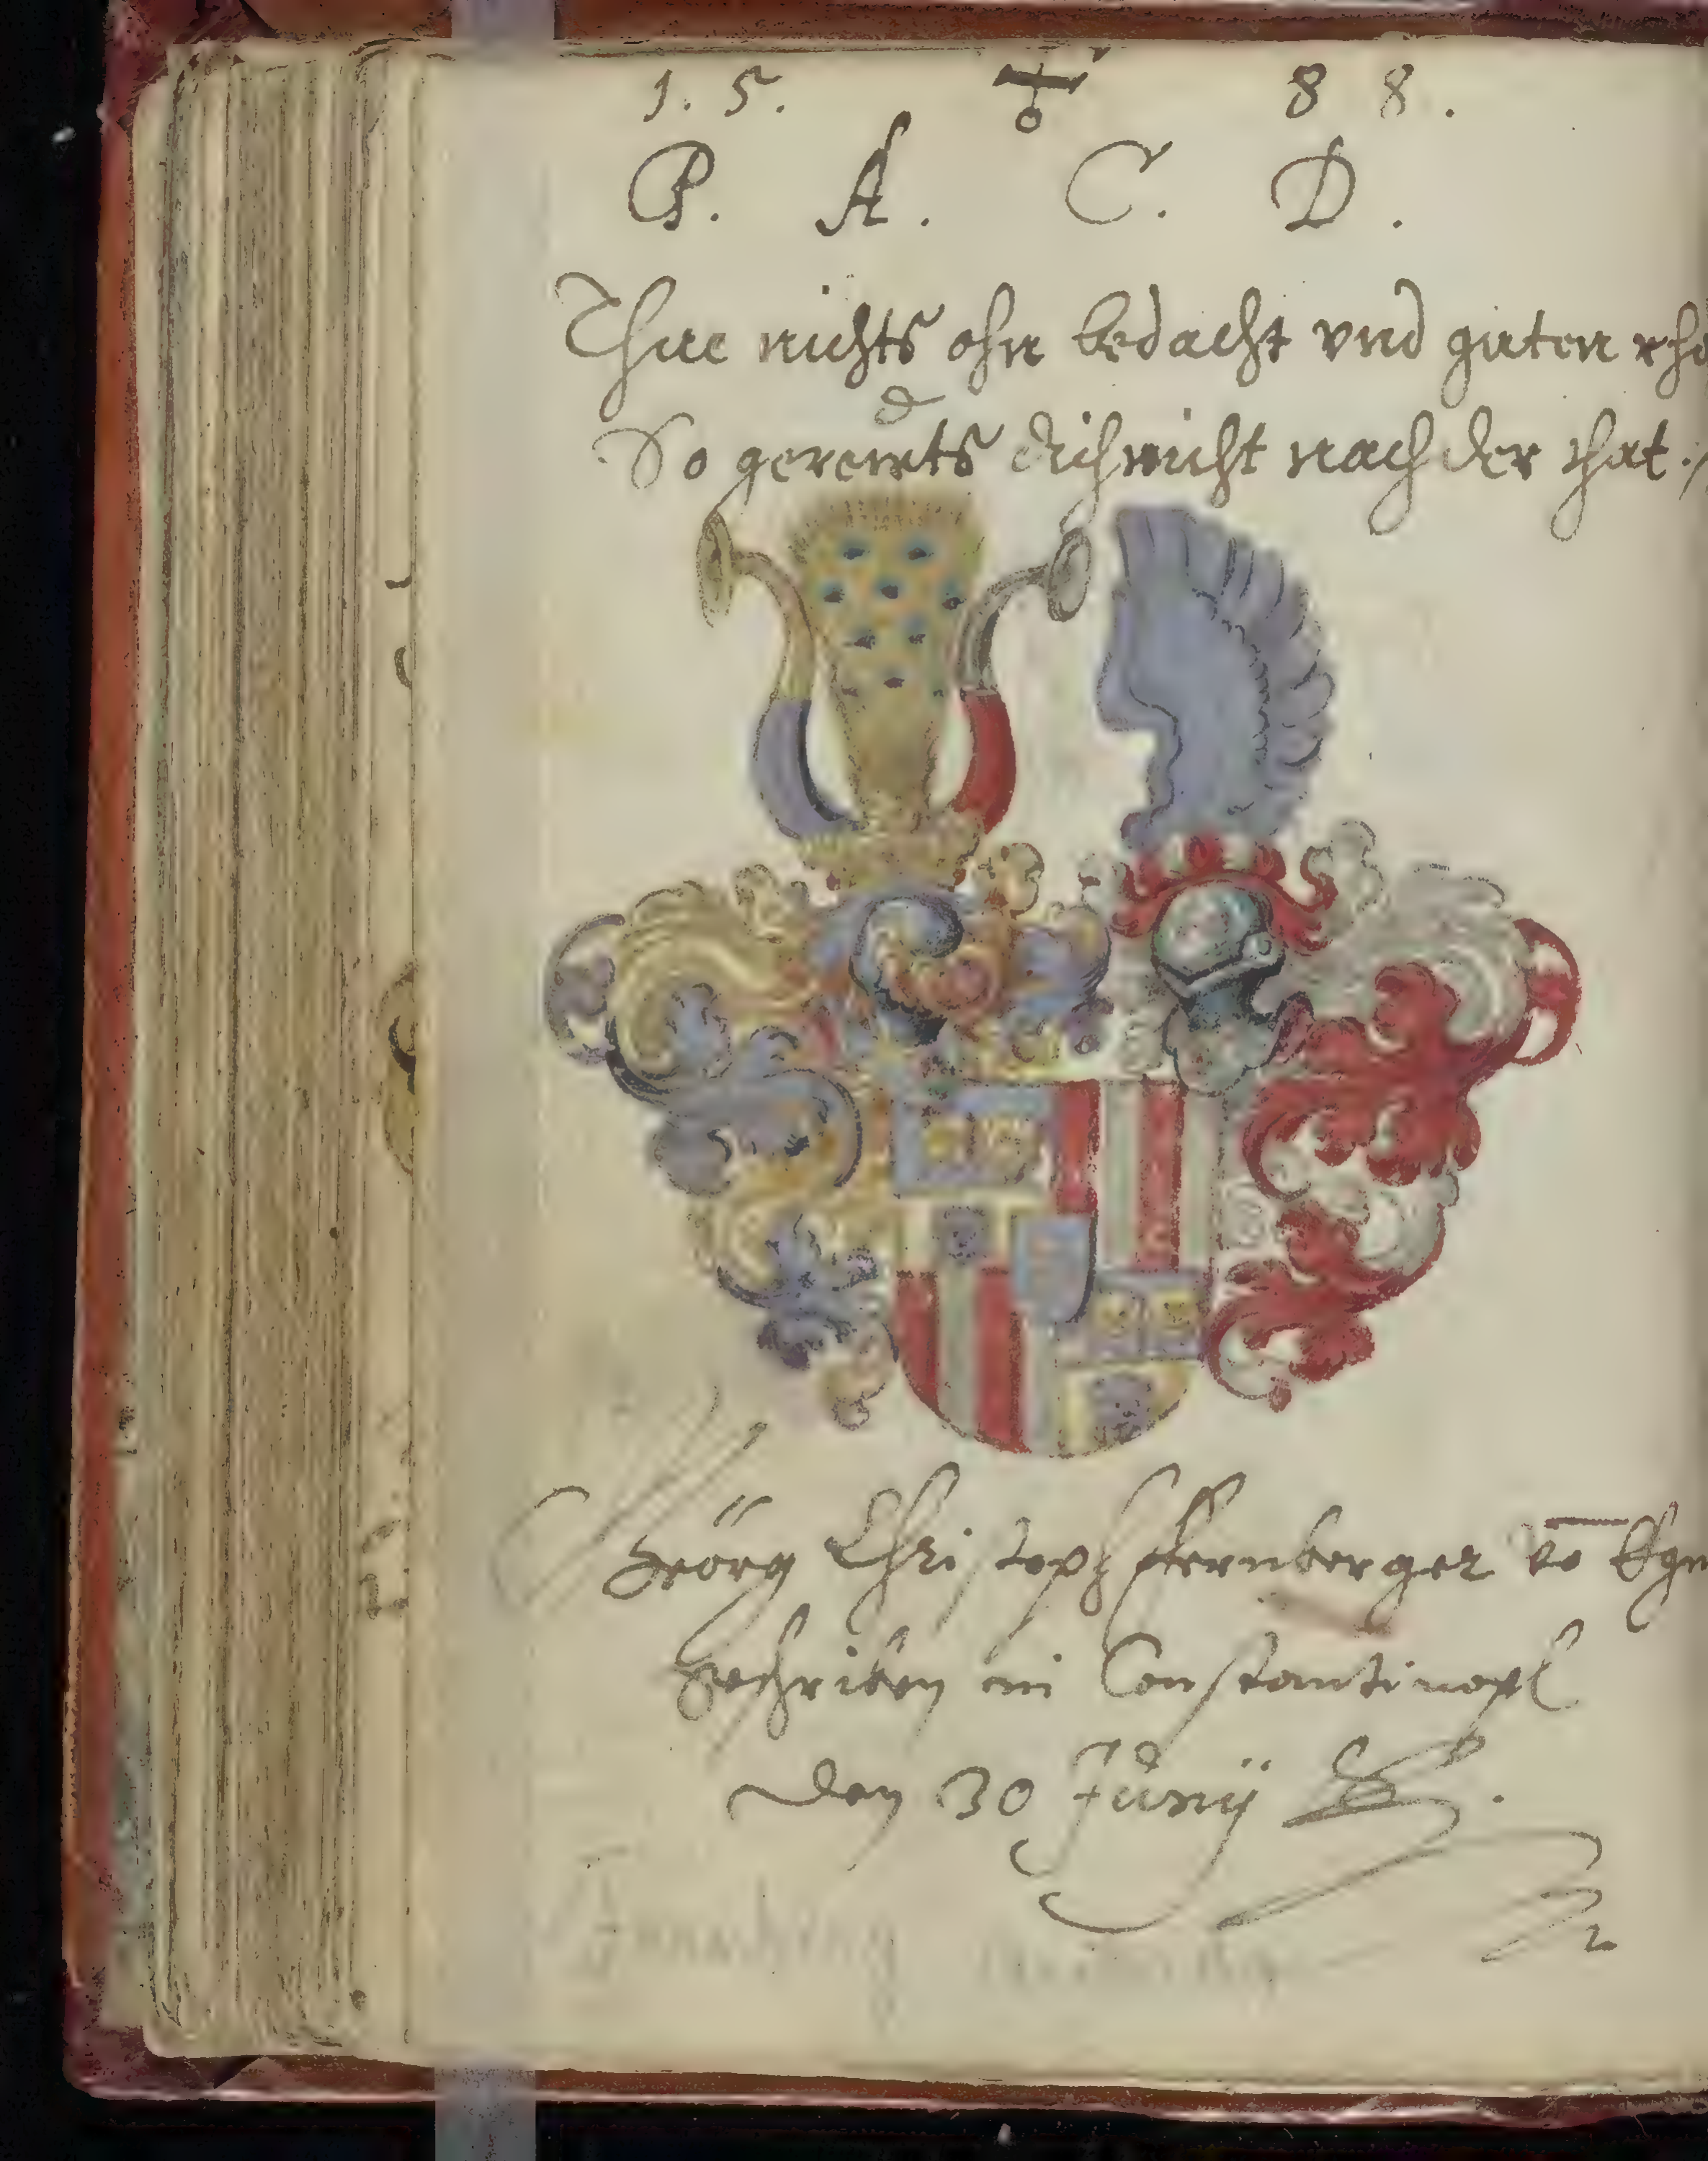 1. 5. 8 8.
P. A. C. D.
Thue nichts ohn bedacht vnd guten
So gerewts dich nicht nach der that.
Geörg Christoph fernberger vō
Geschriben in Constantinopl
den 30 Junÿ